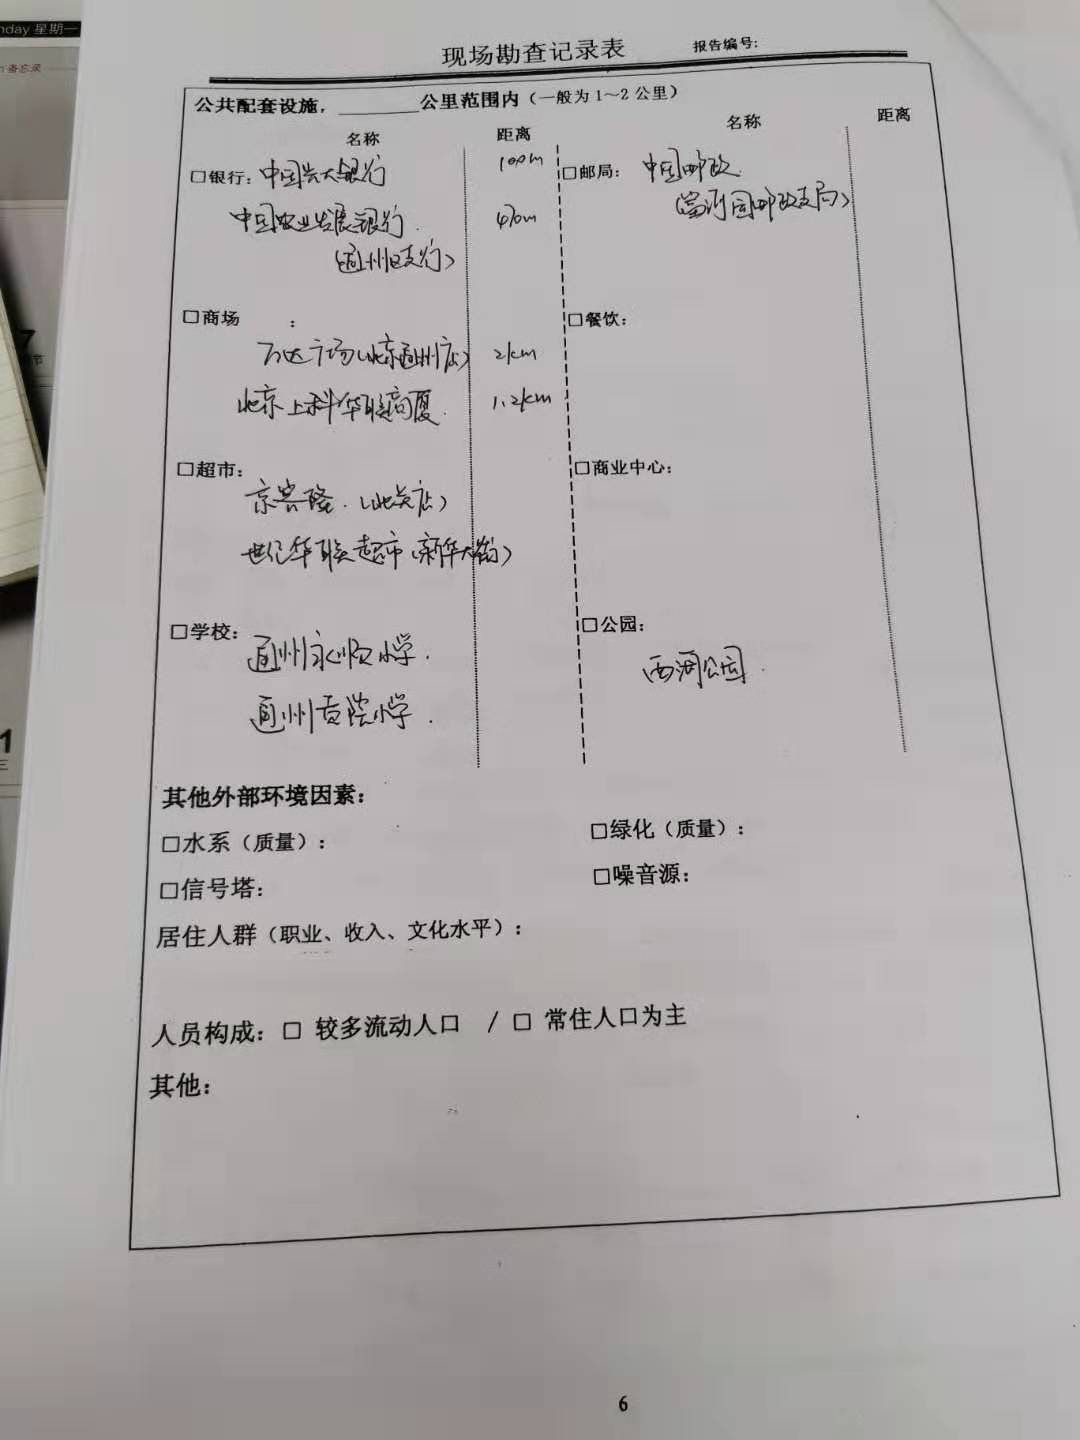 nday 星期一
备忘录
现场勘查记录表
报告编号:
公共配套设施，________公里范围内（一般为1～2公里）
名称 距离 名称 距离
□银行: 中国光大银行 100m □邮局: 中国邮政
中国农业发展银行 470m (富河园邮政支局)
(通州区支行)
□商场 : □餐饮:
万达广场(北京通州店) 2km
北京上科华联商厦 1.2km
□超市: □商业中心:
京客隆(北关店)
世纪华联超市(新华大街)
□学校: □公园:
通州永顺小学 西海公园
通州贡院小学
其他外部环境因素:
□水系（质量）: □绿化（质量）:
□信号塔: □噪音源:
居住人群（职业、收入、文化水平）:
人员构成: □ 较多流动人口 / □ 常住人口为主
其他:
6